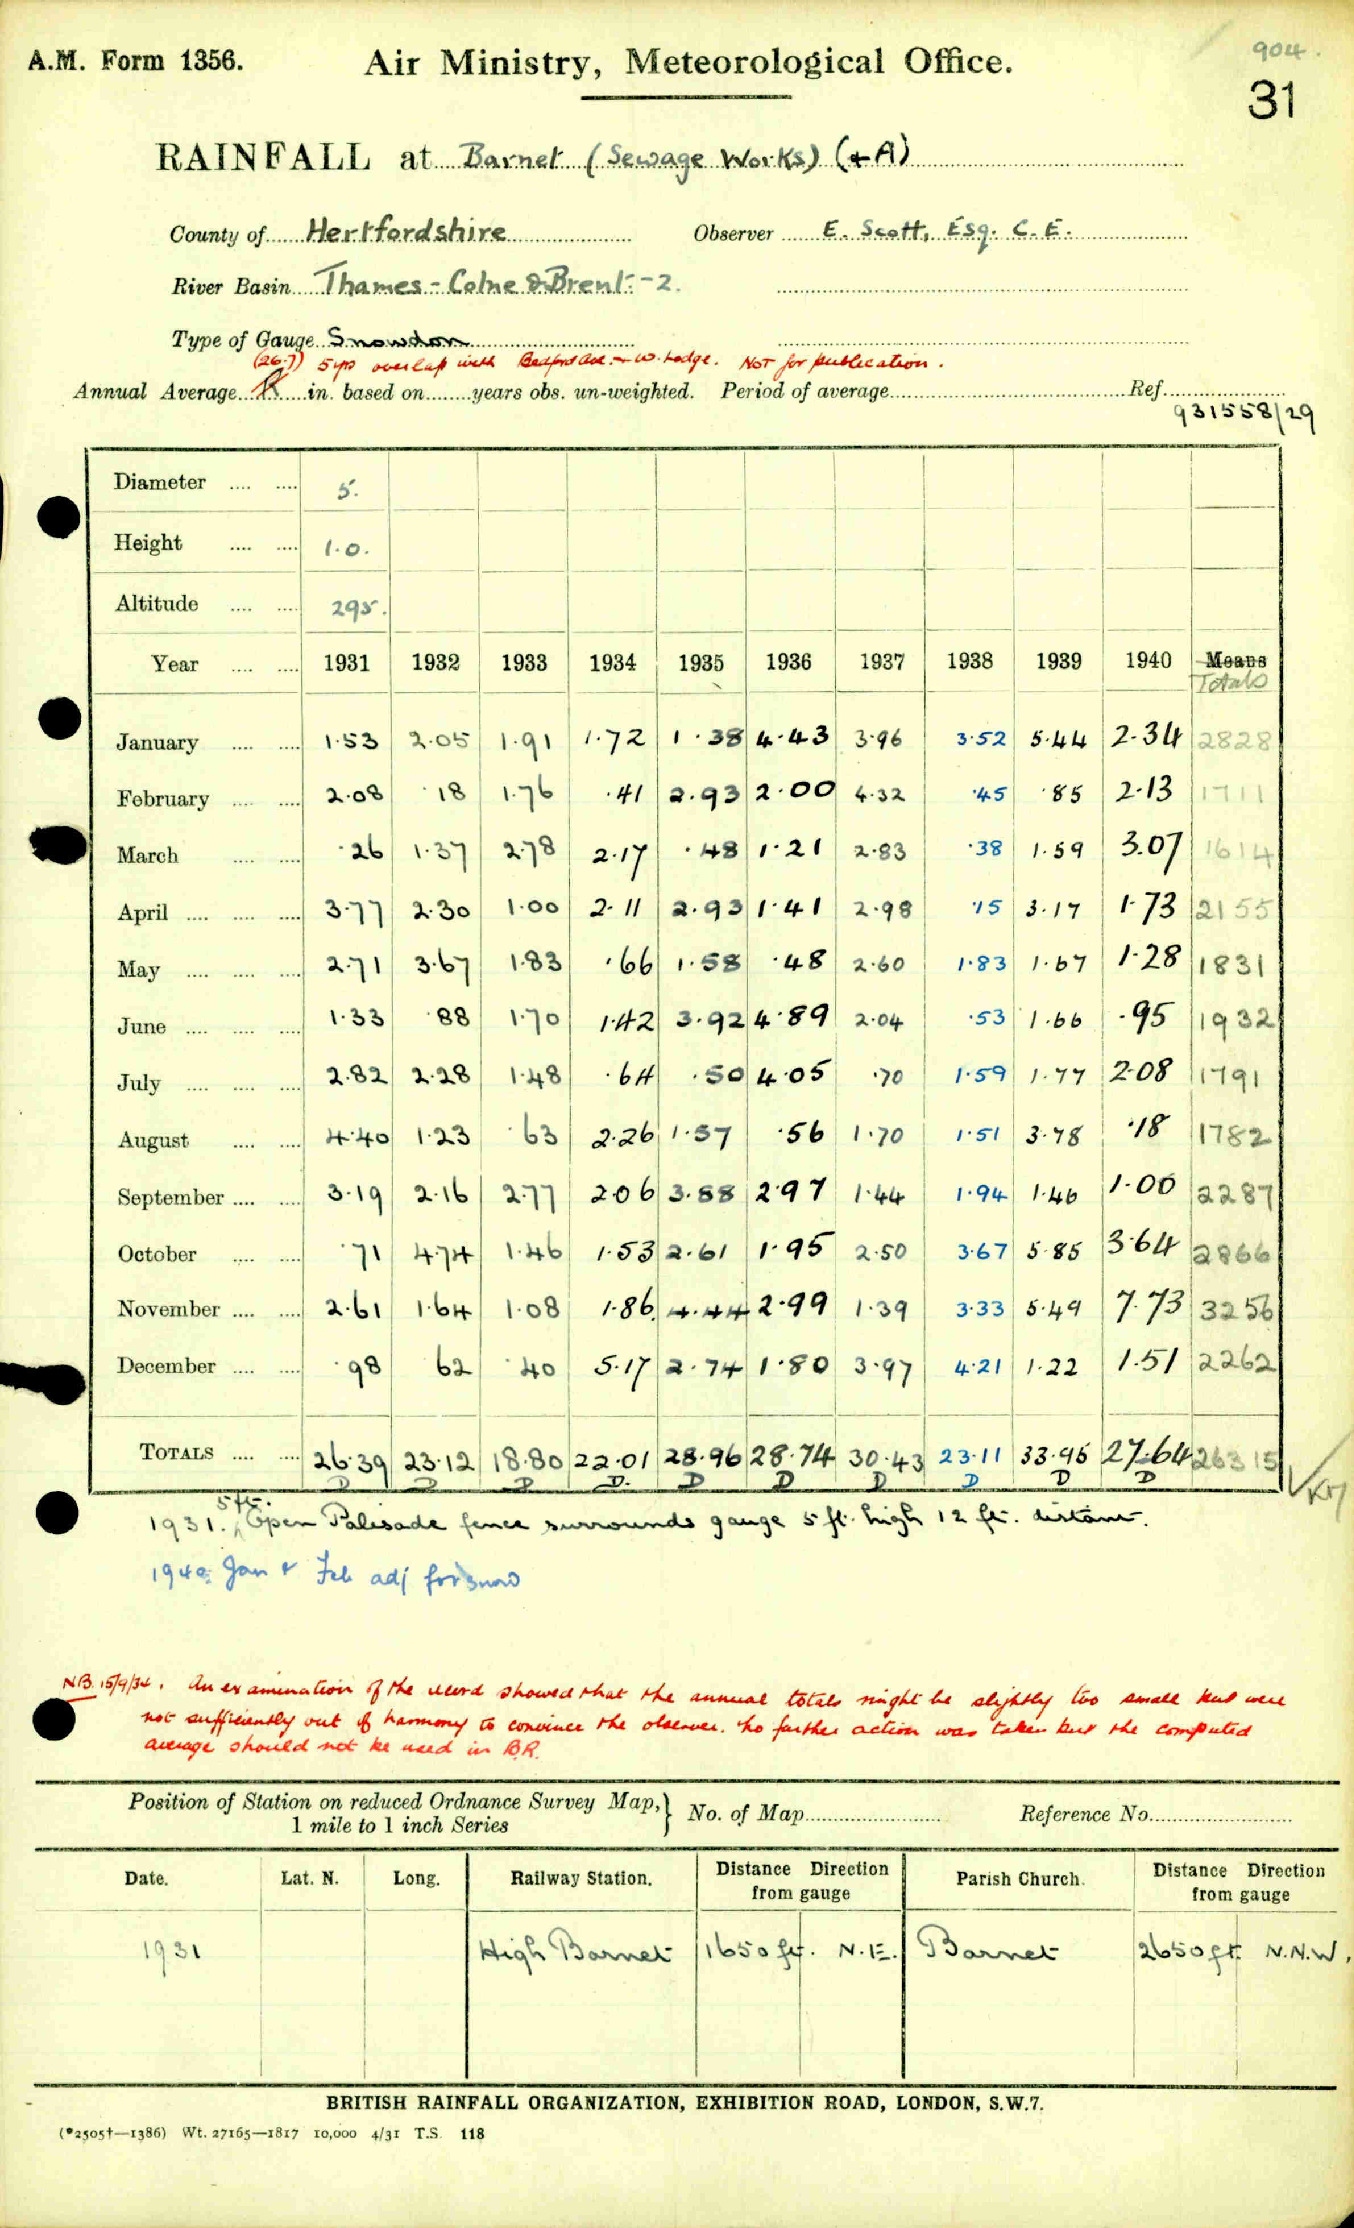 904.
A.M. Form 1356. Air Ministry, Meteorological Office.
31
RAINFALL at Barnet (Sewage Works) (+A)
County of Hertfordshire Observer E. Scott, Esq. C.E.
River Basin Thames - Colne & Brent - 2.
Type of Gauge Snowdon
(26.7) 5 yrs overlap with Bedford Ave. + W. Lodge. NOT for publication.
Annual Average in. based on years obs. un-weighted. Period of average Ref.
931558/29
Diameter 5.
Height 1.0.
Altitude 295.
Year 1931 1932 1933 1934 1935 1936 1937 1938 1939 1940 Means
Totals
January 1.53 2.05 1.91 1.72 1.38 4.43 3.96 3.52 5.44 2.34 2828
February 2.08 .18 1.76 .41 2.93 2.00 4.32 .45 .85 2.13 1711
March .26 1.37 2.78 2.17 .48 1.21 2.83 .38 1.59 3.07 1614
April 3.77 2.30 1.00 2.11 2.93 1.41 2.98 .15 3.17 1.73 2155
May 2.71 3.67 1.83 .66 1.58 .48 2.60 1.83 1.67 1.28 1831
June 1.33 .88 1.70 1.42 3.92 4.89 2.04 .53 1.66 .95 1932
July 2.82 2.28 1.48 .64 .50 4.05 .70 1.59 1.77 2.08 1791
August 4.40 1.23 .63 2.26 1.57 .56 1.70 1.51 3.78 .18 1782
September 3.19 2.16 2.77 2.06 3.88 2.97 1.44 1.94 1.46 1.00 2287
October .71 4.74 1.46 1.53 2.61 1.95 2.50 3.67 5.85 3.64 2866
November 2.61 1.64 1.08 1.86 4.44 2.99 1.39 3.33 5.49 7.73 3256
December .98 62 .40 5.17 2.74 1.80 3.97 4.21 1.22 1.51 2262
TOTALS 26.39 23.12 18.80 22.01 28.96 28.74 30.43 23.11 33.95 27.64 26315
D D D D D D D D D D
5 ft.
1931. Open Palisade fence surrounds gauge 5 ft. high 12 ft. distant.
1940. Jan & Feb adj for snow
NB 15/9/34. An examination of the record showed that the annual totals might be slightly too small but were
not sufficiently out of harmony to convince the observer. No further action was taken but the computed
average should not be used in B.R.
Position of Station on reduced Ordnance Survey Map, } No. of Map Reference No.
1 mile to 1 inch Series
Date. Lat. N. Long. Railway Station. Distance Direction from gauge Parish Church. Distance Direction from gauge
1931 High Barnet 1650 ft. N.E. Barnet 2650 ft. N.N.W.
BRITISH RAINFALL ORGANIZATION, EXHIBITION ROAD, LONDON, S.W.7.
(*2505†—1386) Wt. 27165—1817 10,000 4/31 T.S. 118